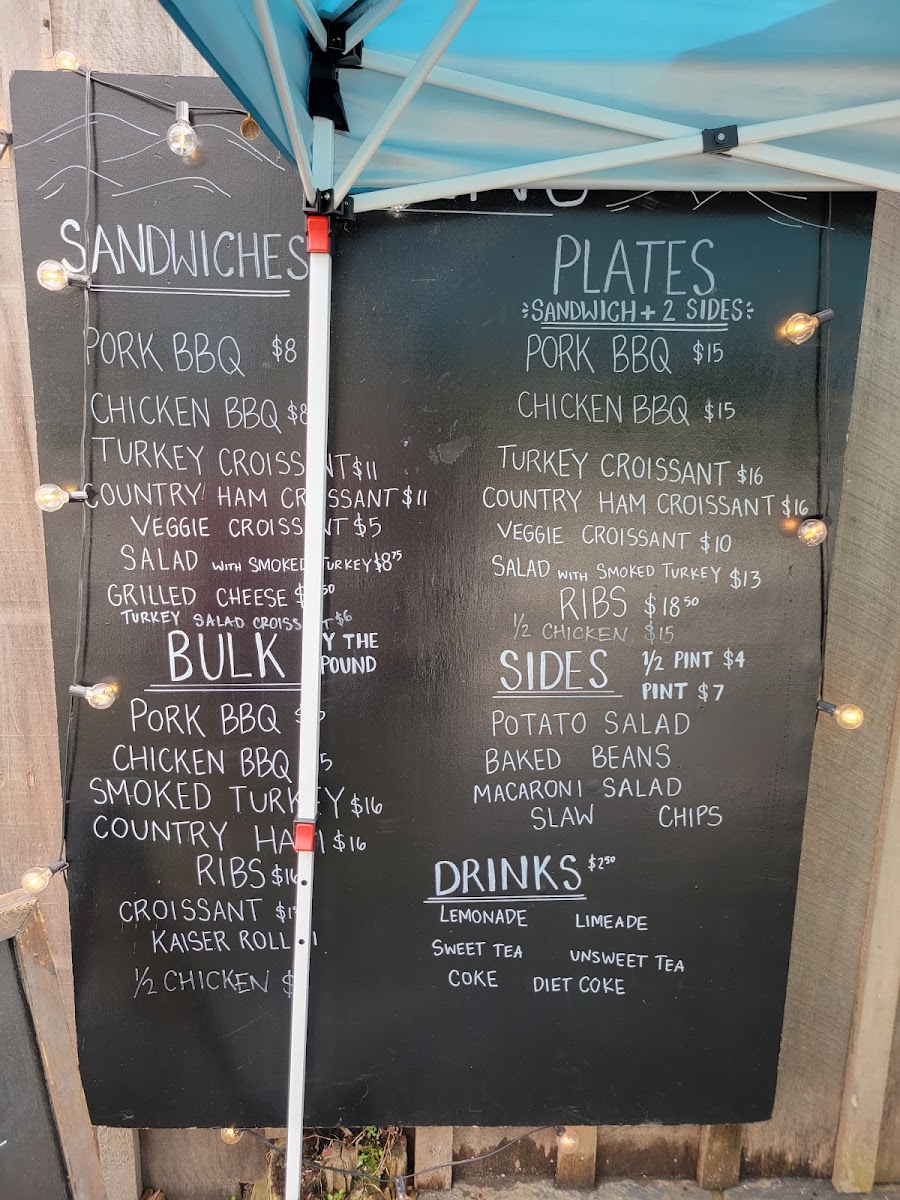 SANDWICHES
PORK BBQ $8
CHICKEN BBQ $8
TURKEY CROISSANT $11
COUNTRY HAM CROISSANT $11
VEGGIE CROISSANT $5
SALAD WITH SMOKED TURKEY $8.75
GRILLED CHEESE
TURKEY SALAD CROISSANT $6
BULK BY THE POUND
PORK BBQ
CHICKEN BBQ
SMOKED TURKEY $16
COUNTRY HAM $16
RIBS $16
CROISSANT
KAISER ROLL
1/2 CHICKEN
PLATES
SANDWICH + 2 SIDES
PORK BBQ $15
CHICKEN BBQ $15
TURKEY CROISSANT $16
COUNTRY HAM CROISSANT $16
VEGGIE CROISSANT $10
SALAD WITH SMOKED TURKEY $13
RIBS $18.50
1/2 CHICKEN $15
SIDES 1/2 PINT $4
PINT $7
POTATO SALAD
BAKED BEANS
MACARONI SALAD
SLAW CHIPS
DRINKS $2.50
LEMONADE LIMEADE
SWEET TEA UNSWEET TEA
COKE DIET COKE